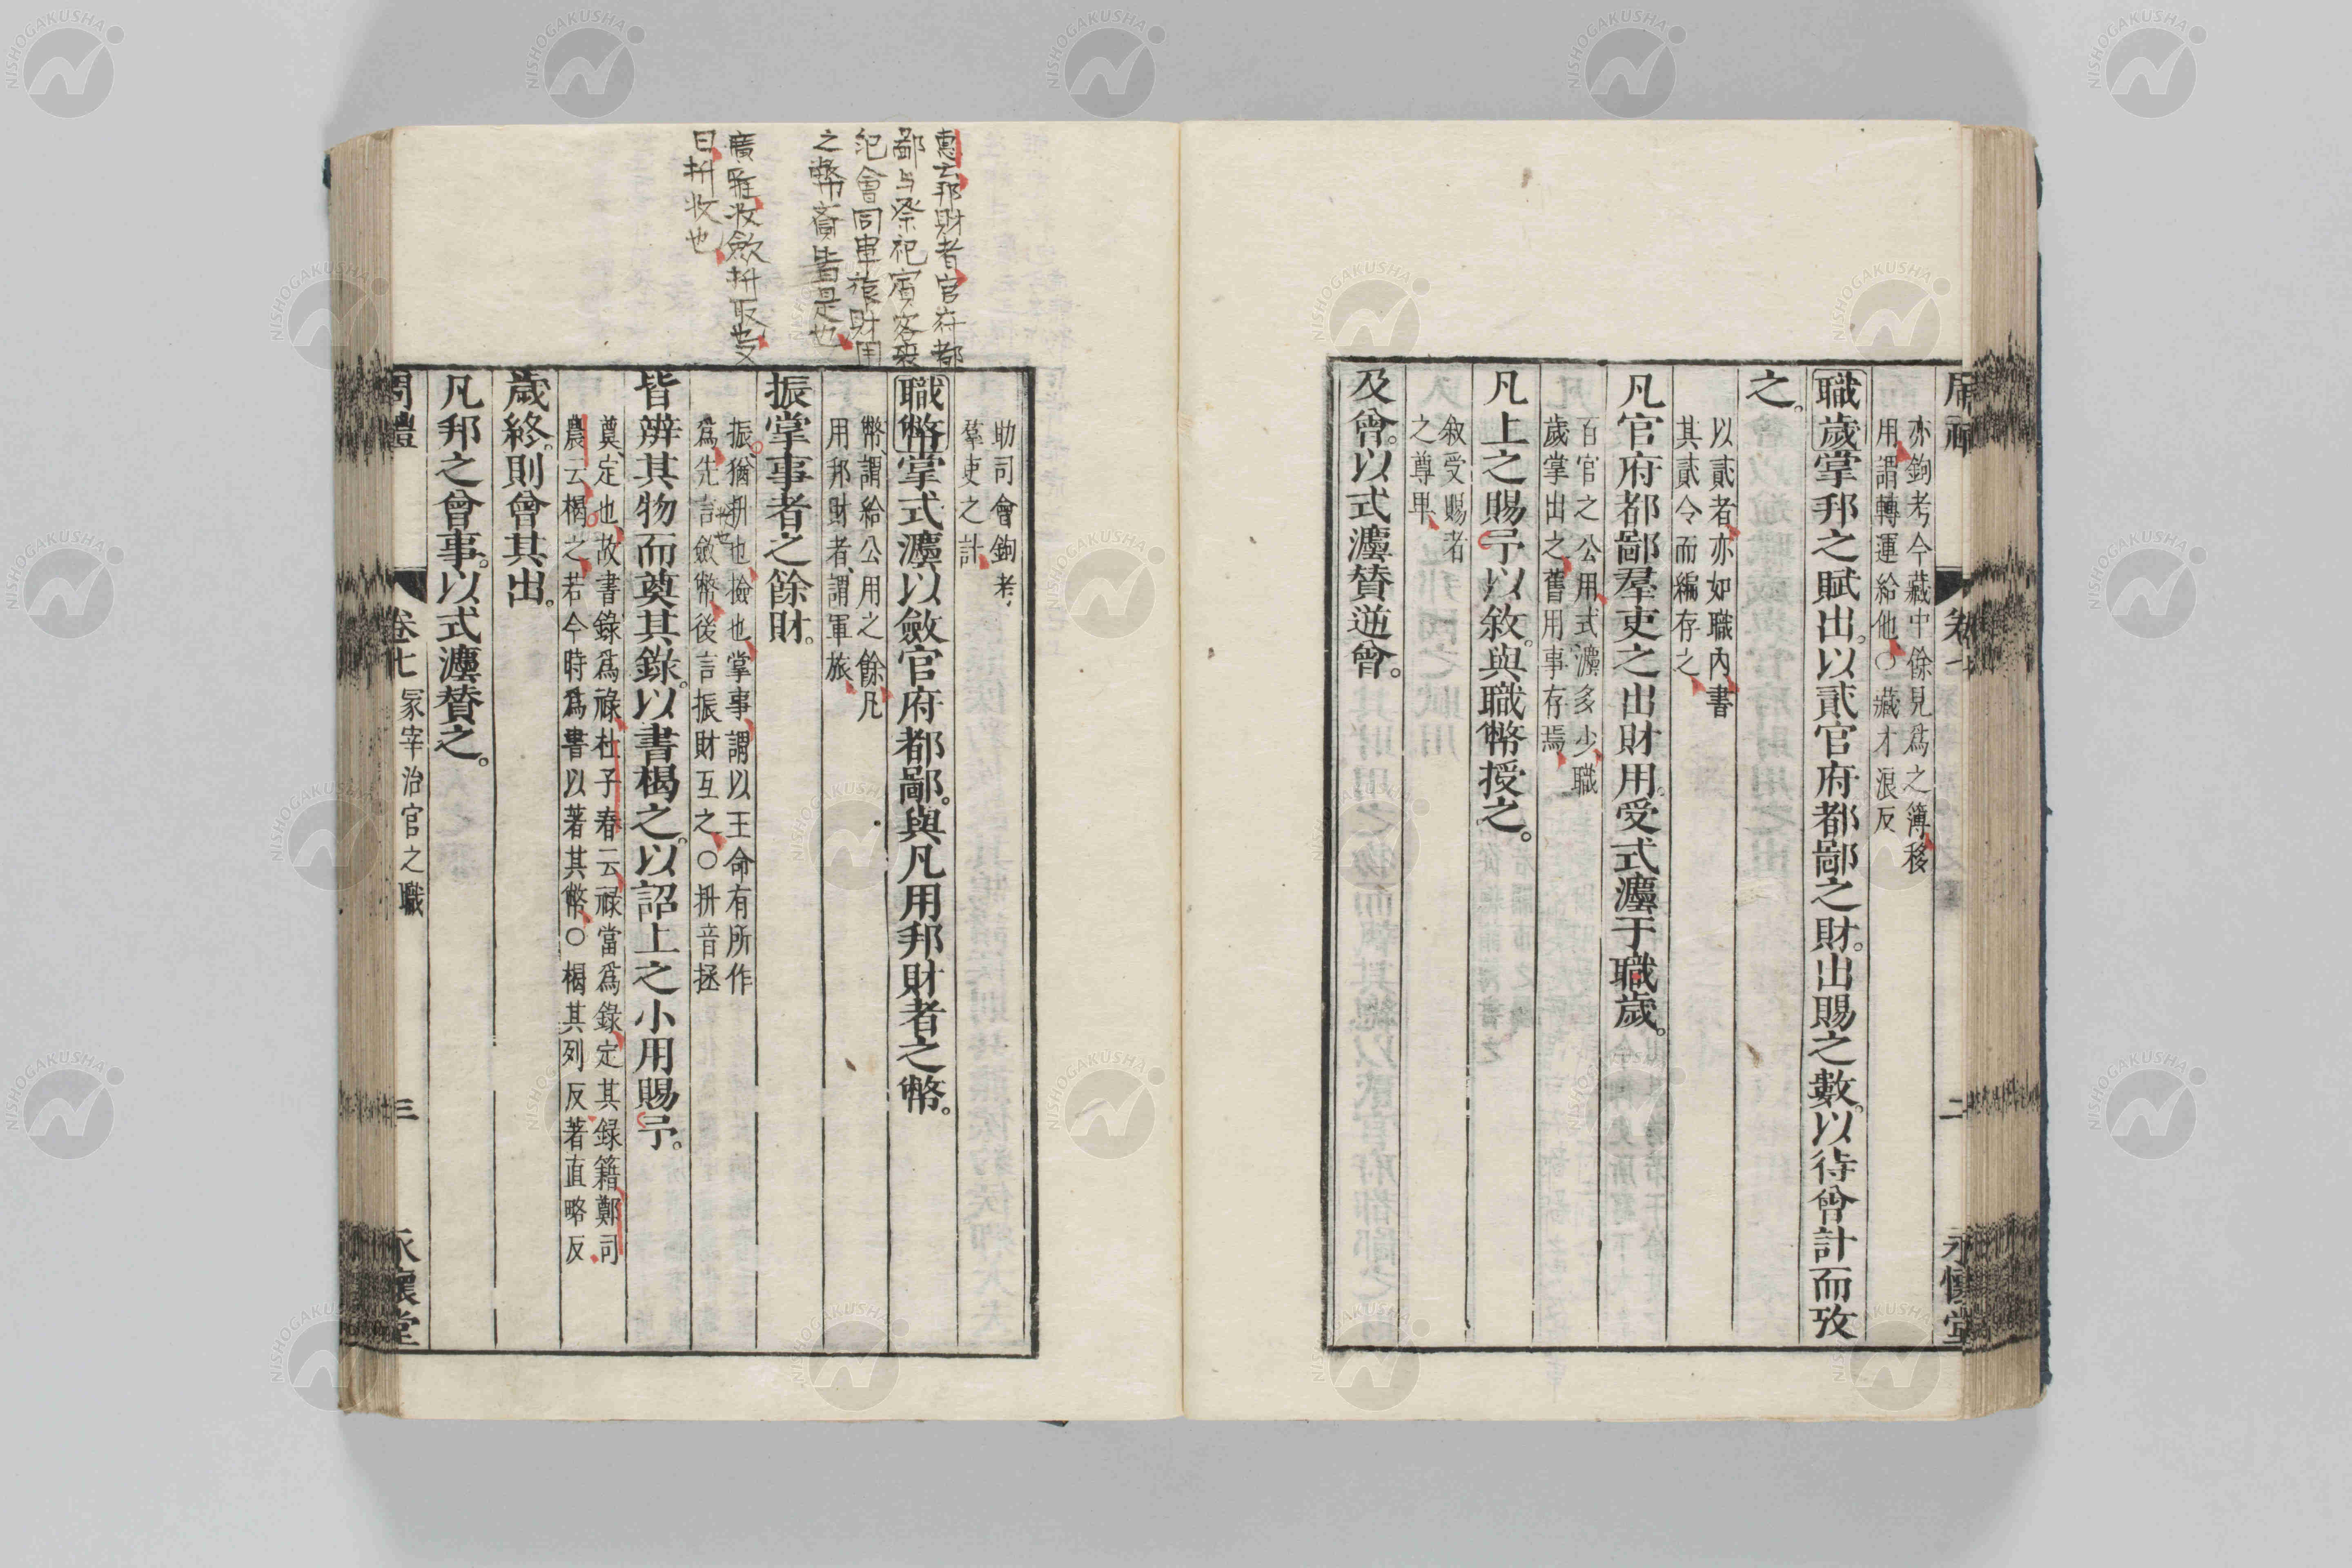 周禮
卷七
二
永懷堂
亦鉤考今藏中餘見爲之簿移
用謂轉運給他○藏才浪反
職歲掌邦之賦出。以貳官府都鄙之財。出賜之數。以待會計而攷
之。
以貳者亦如職內書
其貳令而編存之
凡官府都鄙羣吏之出財用。受式灋于職歲。
百官之公用式灋多少職
歲掌出之舊用事存焉
凡上之賜予以敘。與職幣授之。
敘受賜者
之尊卑
及會。以式灋贊逆會。
惠云邦財者官府都
鄙与祭祀賓客喪
紀會同軍旅財用
之幣齎皆是也
廣雅收斂拼取也又
曰拼收也
助司會鉤考
羣吏之計
職幣掌式灋以斂官府都鄙。與凡用邦財者之幣。
幣謂給公用之餘凡
用邦財者謂軍旅
振掌事者之餘財。
振猶拼也檢也掌事謂以王命有所作
爲先言斂幣後言振財互之○拼音拯
皆辨其物而奠其錄。以書楬之。以詔上之小用賜予。
奠定也故書錄爲祿杜子春云祿當爲錄定其錄籍鄭司
農云楬之若今時爲書以著其幣○楬其列反著直略反
歲終。則會其出。
凡邦之會事。以式灋贊之。
周禮
卷七
冢宰治官之職
三
永懷堂
NISHOGAKUSHA